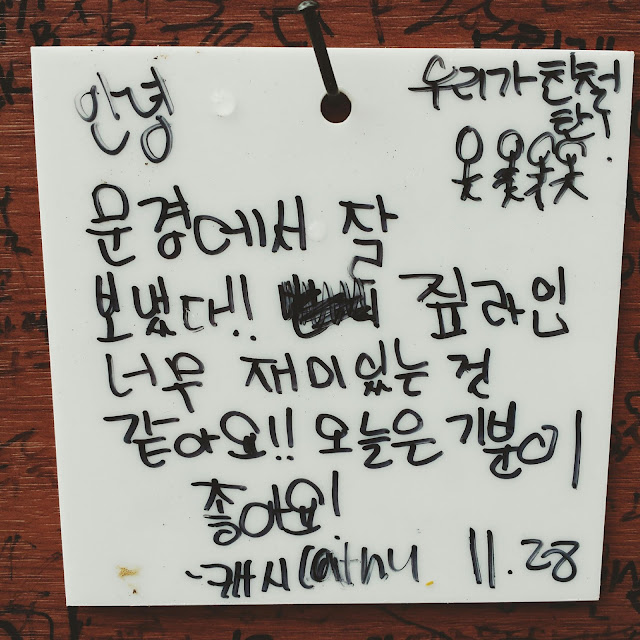 안녕
우리가 친척
문경에서 잘
보냈다!! 짚라인
너무 재미있는 것
같아요!! 오늘은 기분이
좋아요!
-캐시 Cathy 11.28